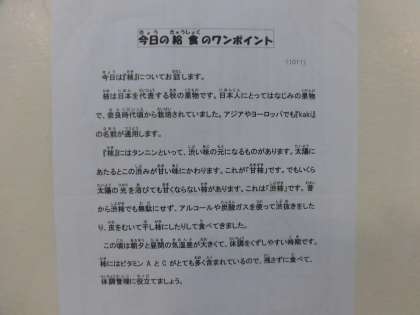 今日の給食のワンポイント
(1011)
今日は『柿』についてお話します。
柿は日本を代表する秋の果物です。日本人にとってはなじみの果物
で、奈良時代頃から栽培されていました。アジアやヨーロッパでも『kaki』
の名前が通用します。
『柿』にはタンニンといって、渋い味の元になるものがあります。太陽に
あたるとこの渋みが甘い味にかわります。これが「甘柿」です。でもいくら
太陽の光を浴びても甘くならない柿があります。これは「渋柿」です。昔
から渋柿でも無駄にせず、アルコールや炭酸ガスを使って渋抜きをした
り、皮をむいて干し柿にしたりして食べてきました。
この頃は朝夕と昼間の気温差が大きくて、体調をくずしやすい時期です。
柿にはビタミンAとCがとても多く含まれているので、残さずに食べて、
体調管理に役立てましょう。